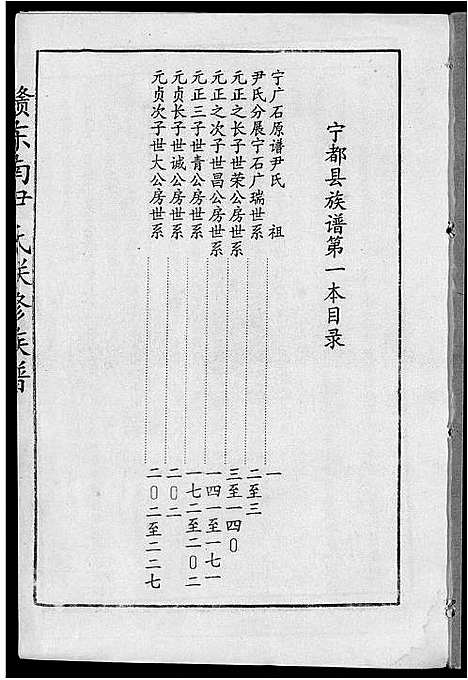 宁都县族谱第一本目录
宁广石原谱尹氏 祖 一
尹氏分展宁石广瑞世系 二至三
元正之长子世荣公房世系 三至一四0
元正之次子世昌公房世系 一四一至一七一
元正三子世青公房世系 一七二至二0二
元贞长子世诚公房世系 二0二
元贞次子世大公房世系 二0二至二二七
赣东南尹氏联修族谱